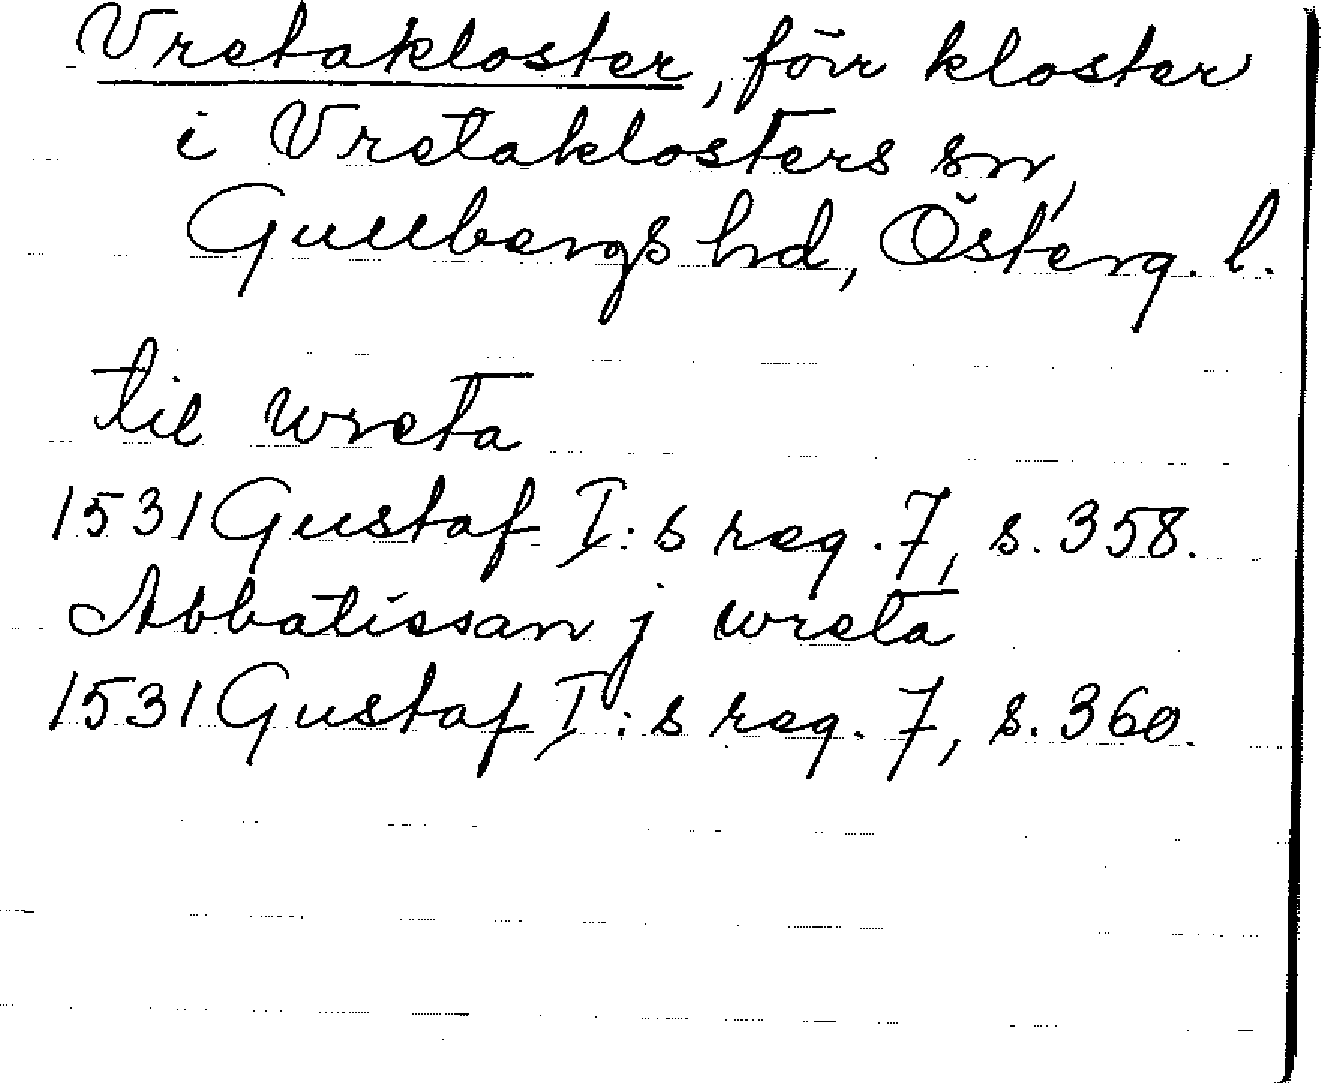 Vretakloster, förr kloster
i Vretaklosters sn,
Gullbergs hd, Österg. l.
til wreta
1531 Gustaf I:s reg. 7, s. 358.
Abbatissan j wreta
1531 Gustaf I:s reg. 7, s. 360.